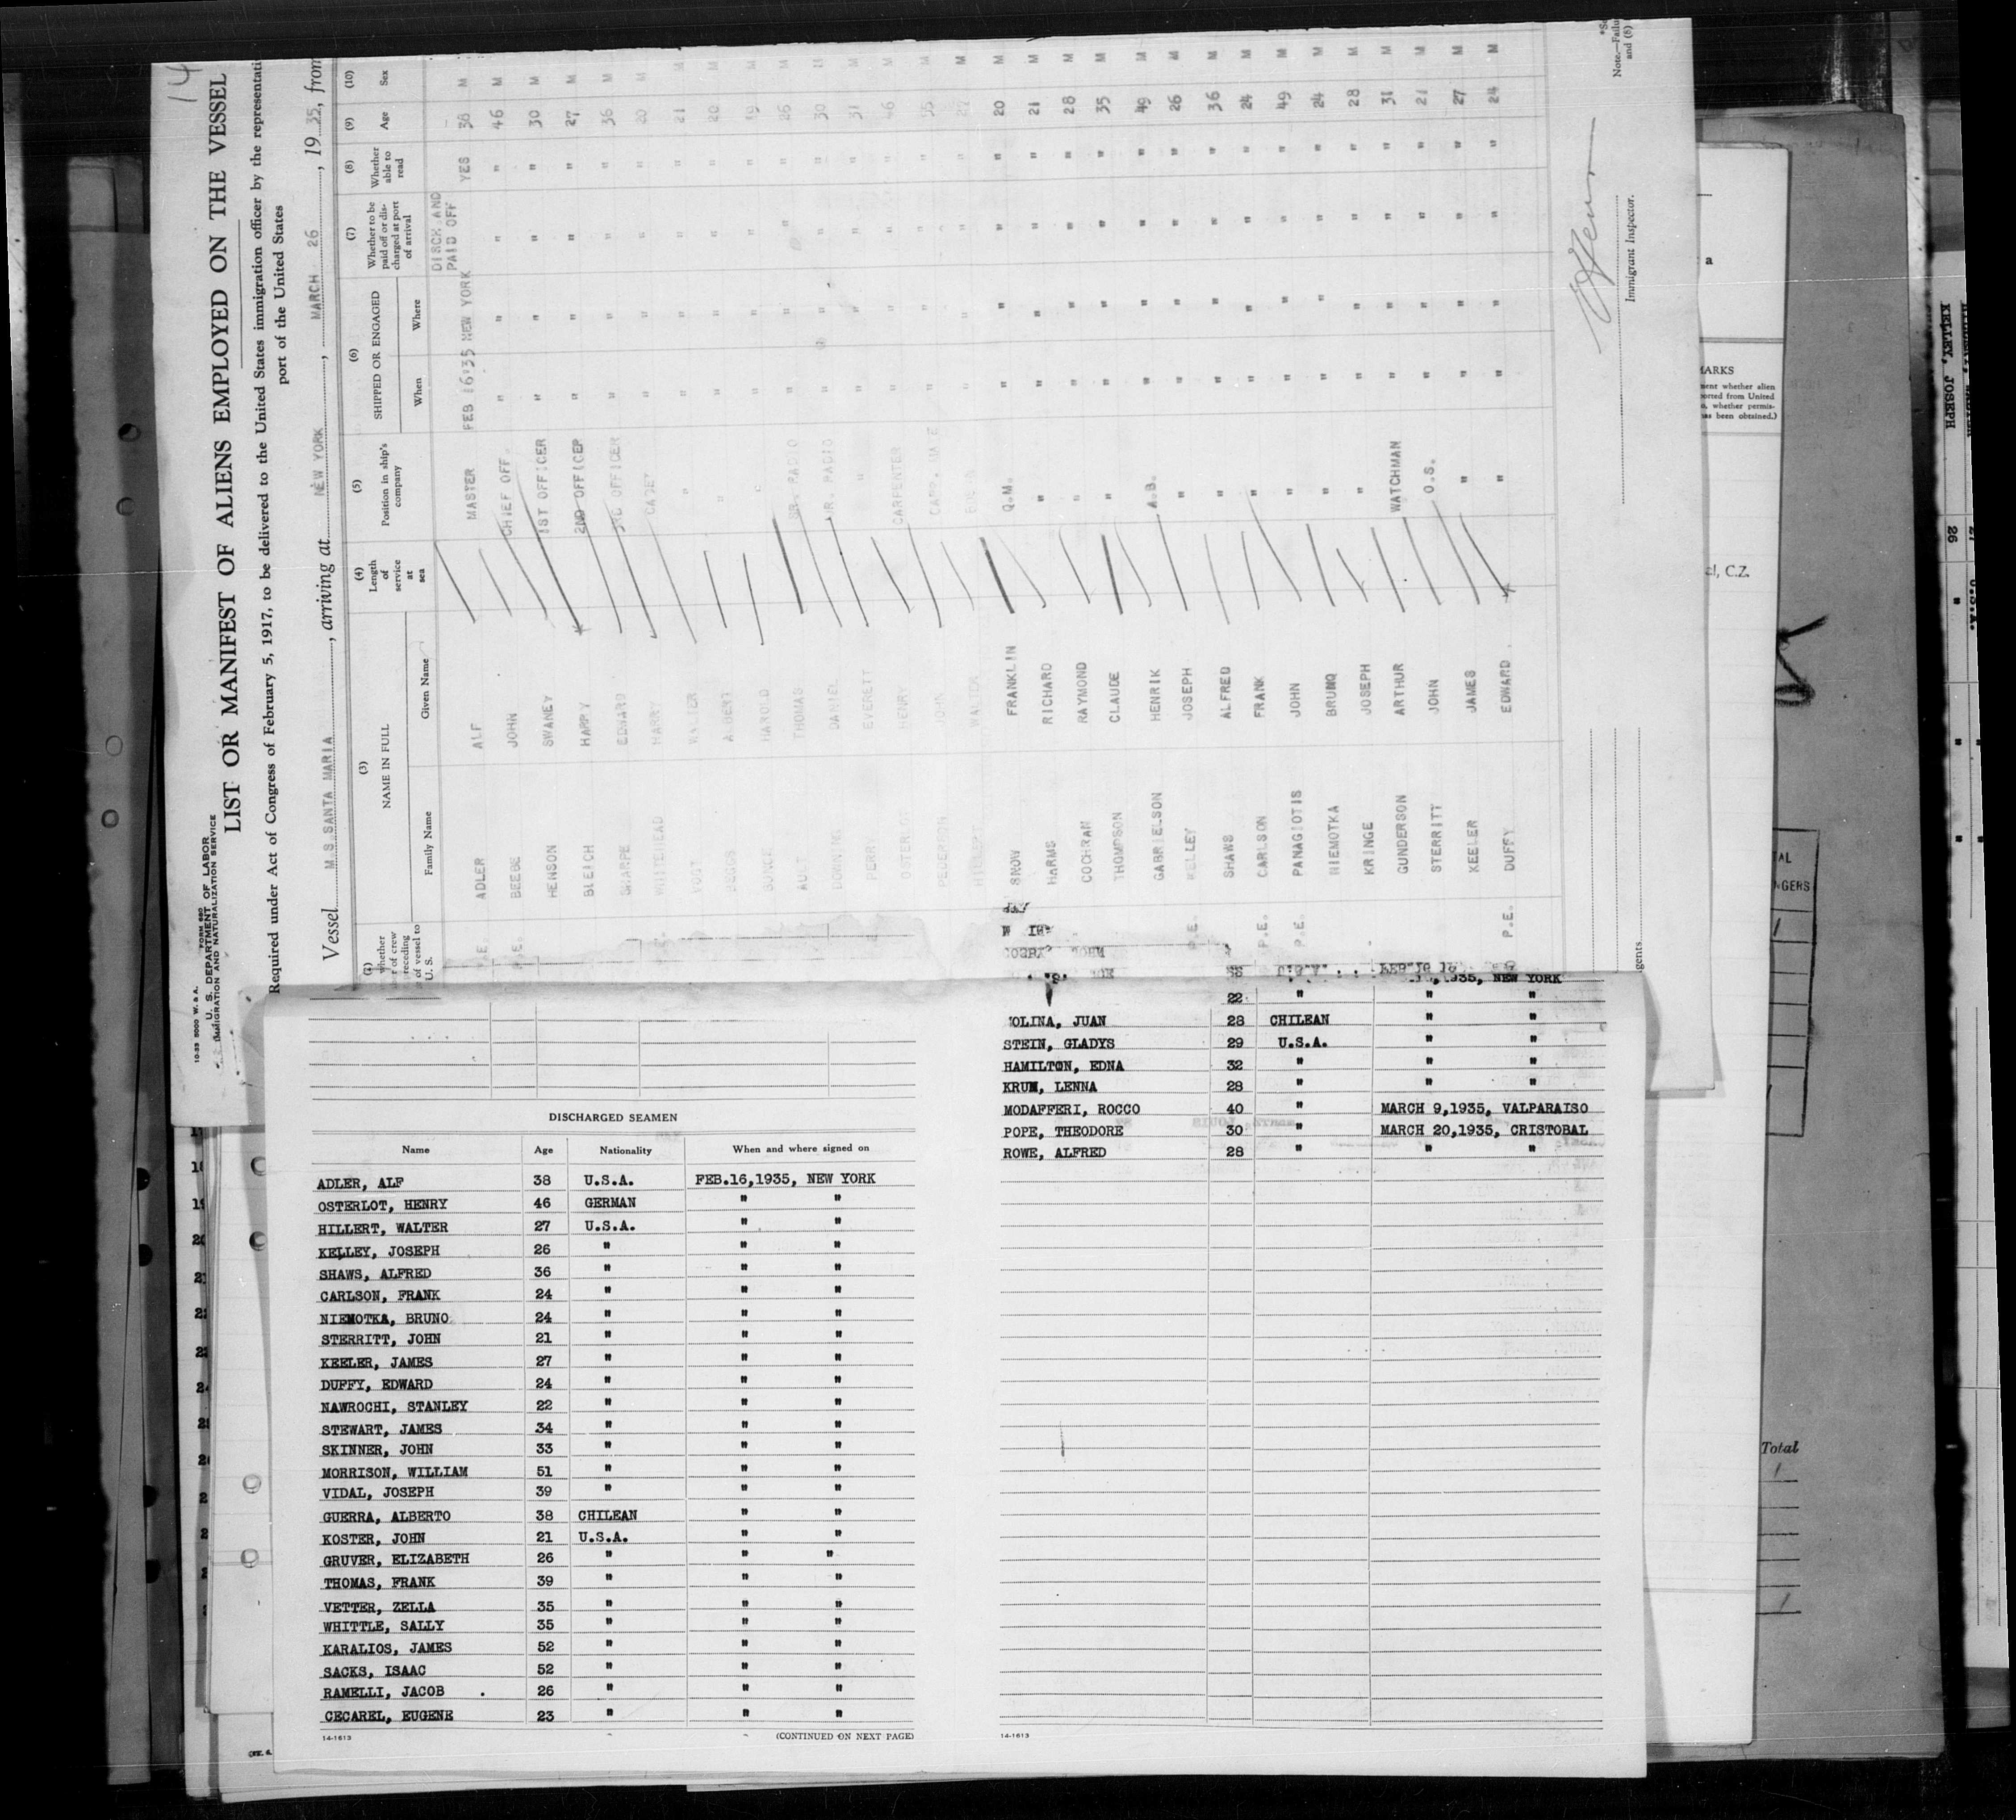 14
10-33 5000 W. & A. FORM 680
U. S. DEPARTMENT OF LABOR
IMMIGRATION AND NATURALIZATION SERVICE
LIST OR MANIFEST OF ALIENS EMPLOYED ON THE VESSEL
Required under Act of Congress of February 5, 1917, to be delivered to the United States immigration officer by the
port of the United States
Vessel M.S. SANTA MARIA, arriving at NEW YORK, MARCH 26, 1935, from
(2) (3) (4) (5) (6) (7) (8) (9) (10)
NAME IN FULL
Family Name Given Name
Length of service at sea
Position in ship's company
SHIPPED OR ENGAGED
When Where
Whether to be paid off or discharged at port of arrival
Whether able to read
Age
Sex
ADLER ALF MASTER FEB 16'35 NEW YORK DISCH AND PAID OFF YES 38 M
P.E. BEEBE JOHN CHIEF OFF. " " " " 46 M
HENSON SWANEY 1ST OFFICER " " " " 30 M
BLEICH HARRY 2ND OFFICER " " " " 27 M
SHARPE EDWARD 3RD OFFICER " " " " 36 M
WHITEHEAD HARRY CADET " " " " 20 M
VOIT WALTER " " " " " 21 M
ALBERT " " " " " 20 M
HAROLD " " " " " 19 M
THOMAS SR. RADIO " " " " 26 M
DOWNING DANIEL JR. RADIO " " " " 30 M
PERRY EVERETT " " " " " 31 M
HENRY CARPENTER " " " " 46 M
PEDERSON JOHN " " " " 35 M
HILLERT WALTER " " " " 27 M
SNOW FRANKLIN Q.M. " " " " 20 M
HARMS RICHARD " " " " " 21 M
COCHRAN RAYMOND " " " " " 28 M
THOMPSON CLAUDE " " " " " 35 M
GABRIELSON HENRIK A.B. " " " " 49 M
P.E. KELLEY JOSEPH " " " " " 26 M
SHAWS ALFRED " " " " " 36 M
P.E. CARLSON FRANK " " " " " 24 M
P.E. PANAGIOTIS JOHN " " " " " 49 M
NIEMOTKA BRUNO " " " " " 24 M
KRINGE JOSEPH " " " " " 28 M
GUNDERSON ARTHUR WATCHMAN " " " " 31 M
STERRITT JOHN O.S. " " " " 21 M
KEELER JAMES " " " " " 27 M
P.E. DUFFY EDWARD " " " " " 24 M
Immigrant Inspector.
DISCHARGED SEAMEN
Name Age Nationality When and where signed on
ADLER, ALF 38 U.S.A. FEB.16,1935, NEW YORK
OSTERLOT, HENRY 46 GERMAN " "
HILLERT, WALTER 27 U.S.A. " "
KELLEY, JOSEPH 26 " " "
SHAWS, ALFRED 36 " " "
CARLSON, FRANK 24 " " "
NIEMOTKA, BRUNO 24 " " "
STERRITT, JOHN 21 " " "
KEELER, JAMES 27 " " "
DUFFY, EDWARD 24 " " "
NAWROCHI, STANLEY 22 " " "
STEWART, JAMES 34 " " "
SKINNER, JOHN 33 " " "
MORRISON, WILLIAM 51 " " "
VIDAL, JOSEPH 39 " " "
GUERRA, ALBERTO 38 CHILEAN " "
KOSTER, JOHN 21 U.S.A. " "
GRUVER, ELIZABETH 26 " " "
THOMAS, FRANK 39 " " "
VETTER, ZELLA 35 " " "
WHITTLE, SALLY 35 " " "
KARALIOS, JAMES 52 " " "
SACKS, ISAAC 52 " " "
RAMELLI, JACOB 26 " " "
CECAREL, EUGENE 23 " " "
14-1613 (CONTINUED ON NEXT PAGE)
1935, NEW YORK
22 " " "
OLINA, JUAN 28 CHILEAN " "
STEIN, GLADYS 29 U.S.A. " "
HAMILTON, EDNA 32 " " "
KRUM, LENNA 28 " " "
MODAFFERI, ROCCO 40 " MARCH 9,1935, VALPARAISO
POPE, THEODORE 30 " MARCH 20,1935, CRISTOBAL
ROWE, ALFRED 28 " " "
14-1613
C.Z.
Total
KELLEY, JOSEPH 26 "